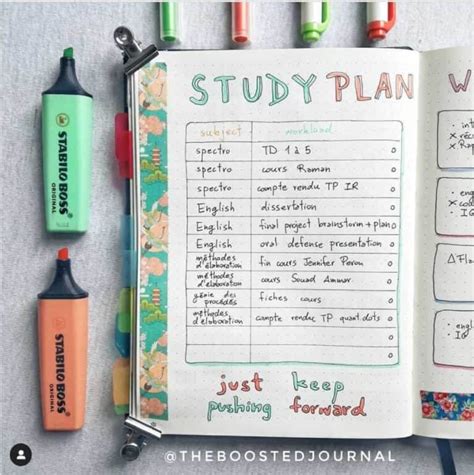 STUDY PLAN W
subject workload
spectro TD 1 à 5
spectro cours Roman
spectro compte rendu TP IR
English dissertation
English final project brainstorm + plan
English oral defense presentation
méthodes d'élaboration fin cours Jennifer Peron
méthodes d'élaboration cours Souad Ammar
génie des procédés fiches cours
méthodes d'élaboration compte rendu TP quant. dots
just keep
pushing forward
STABILO BOSS
ORIGINAL
STABILO BOSS
ORIGINAL
@THEBOOSTEDJOURNAL